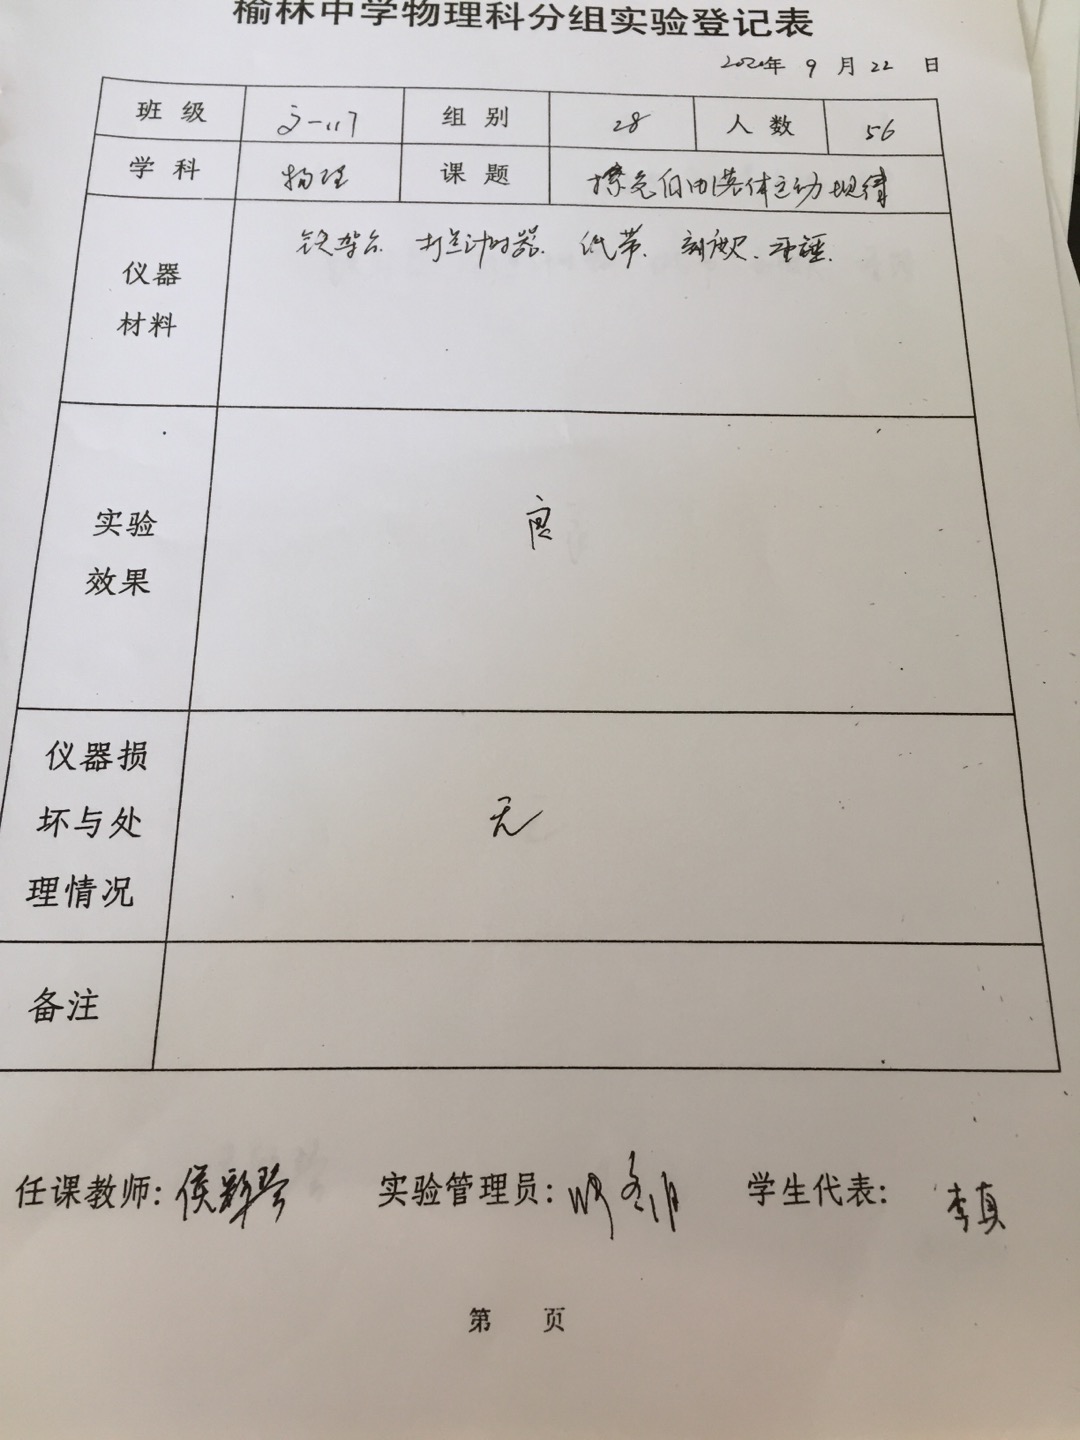 榆林中学物理科分组实验登记表
2020年 9 月 22 日
班级 组别 28 人数 56
学科 物理 课题 探究自由落体运动规律
仪器 铁架台 打点计时器. 纸带. 刻度尺. 重锤.
材料
实验 良
效果
仪器损
坏与处 无
理情况
备注
任课教师: 侯 实验管理员: 学生代表: 李真
第 页